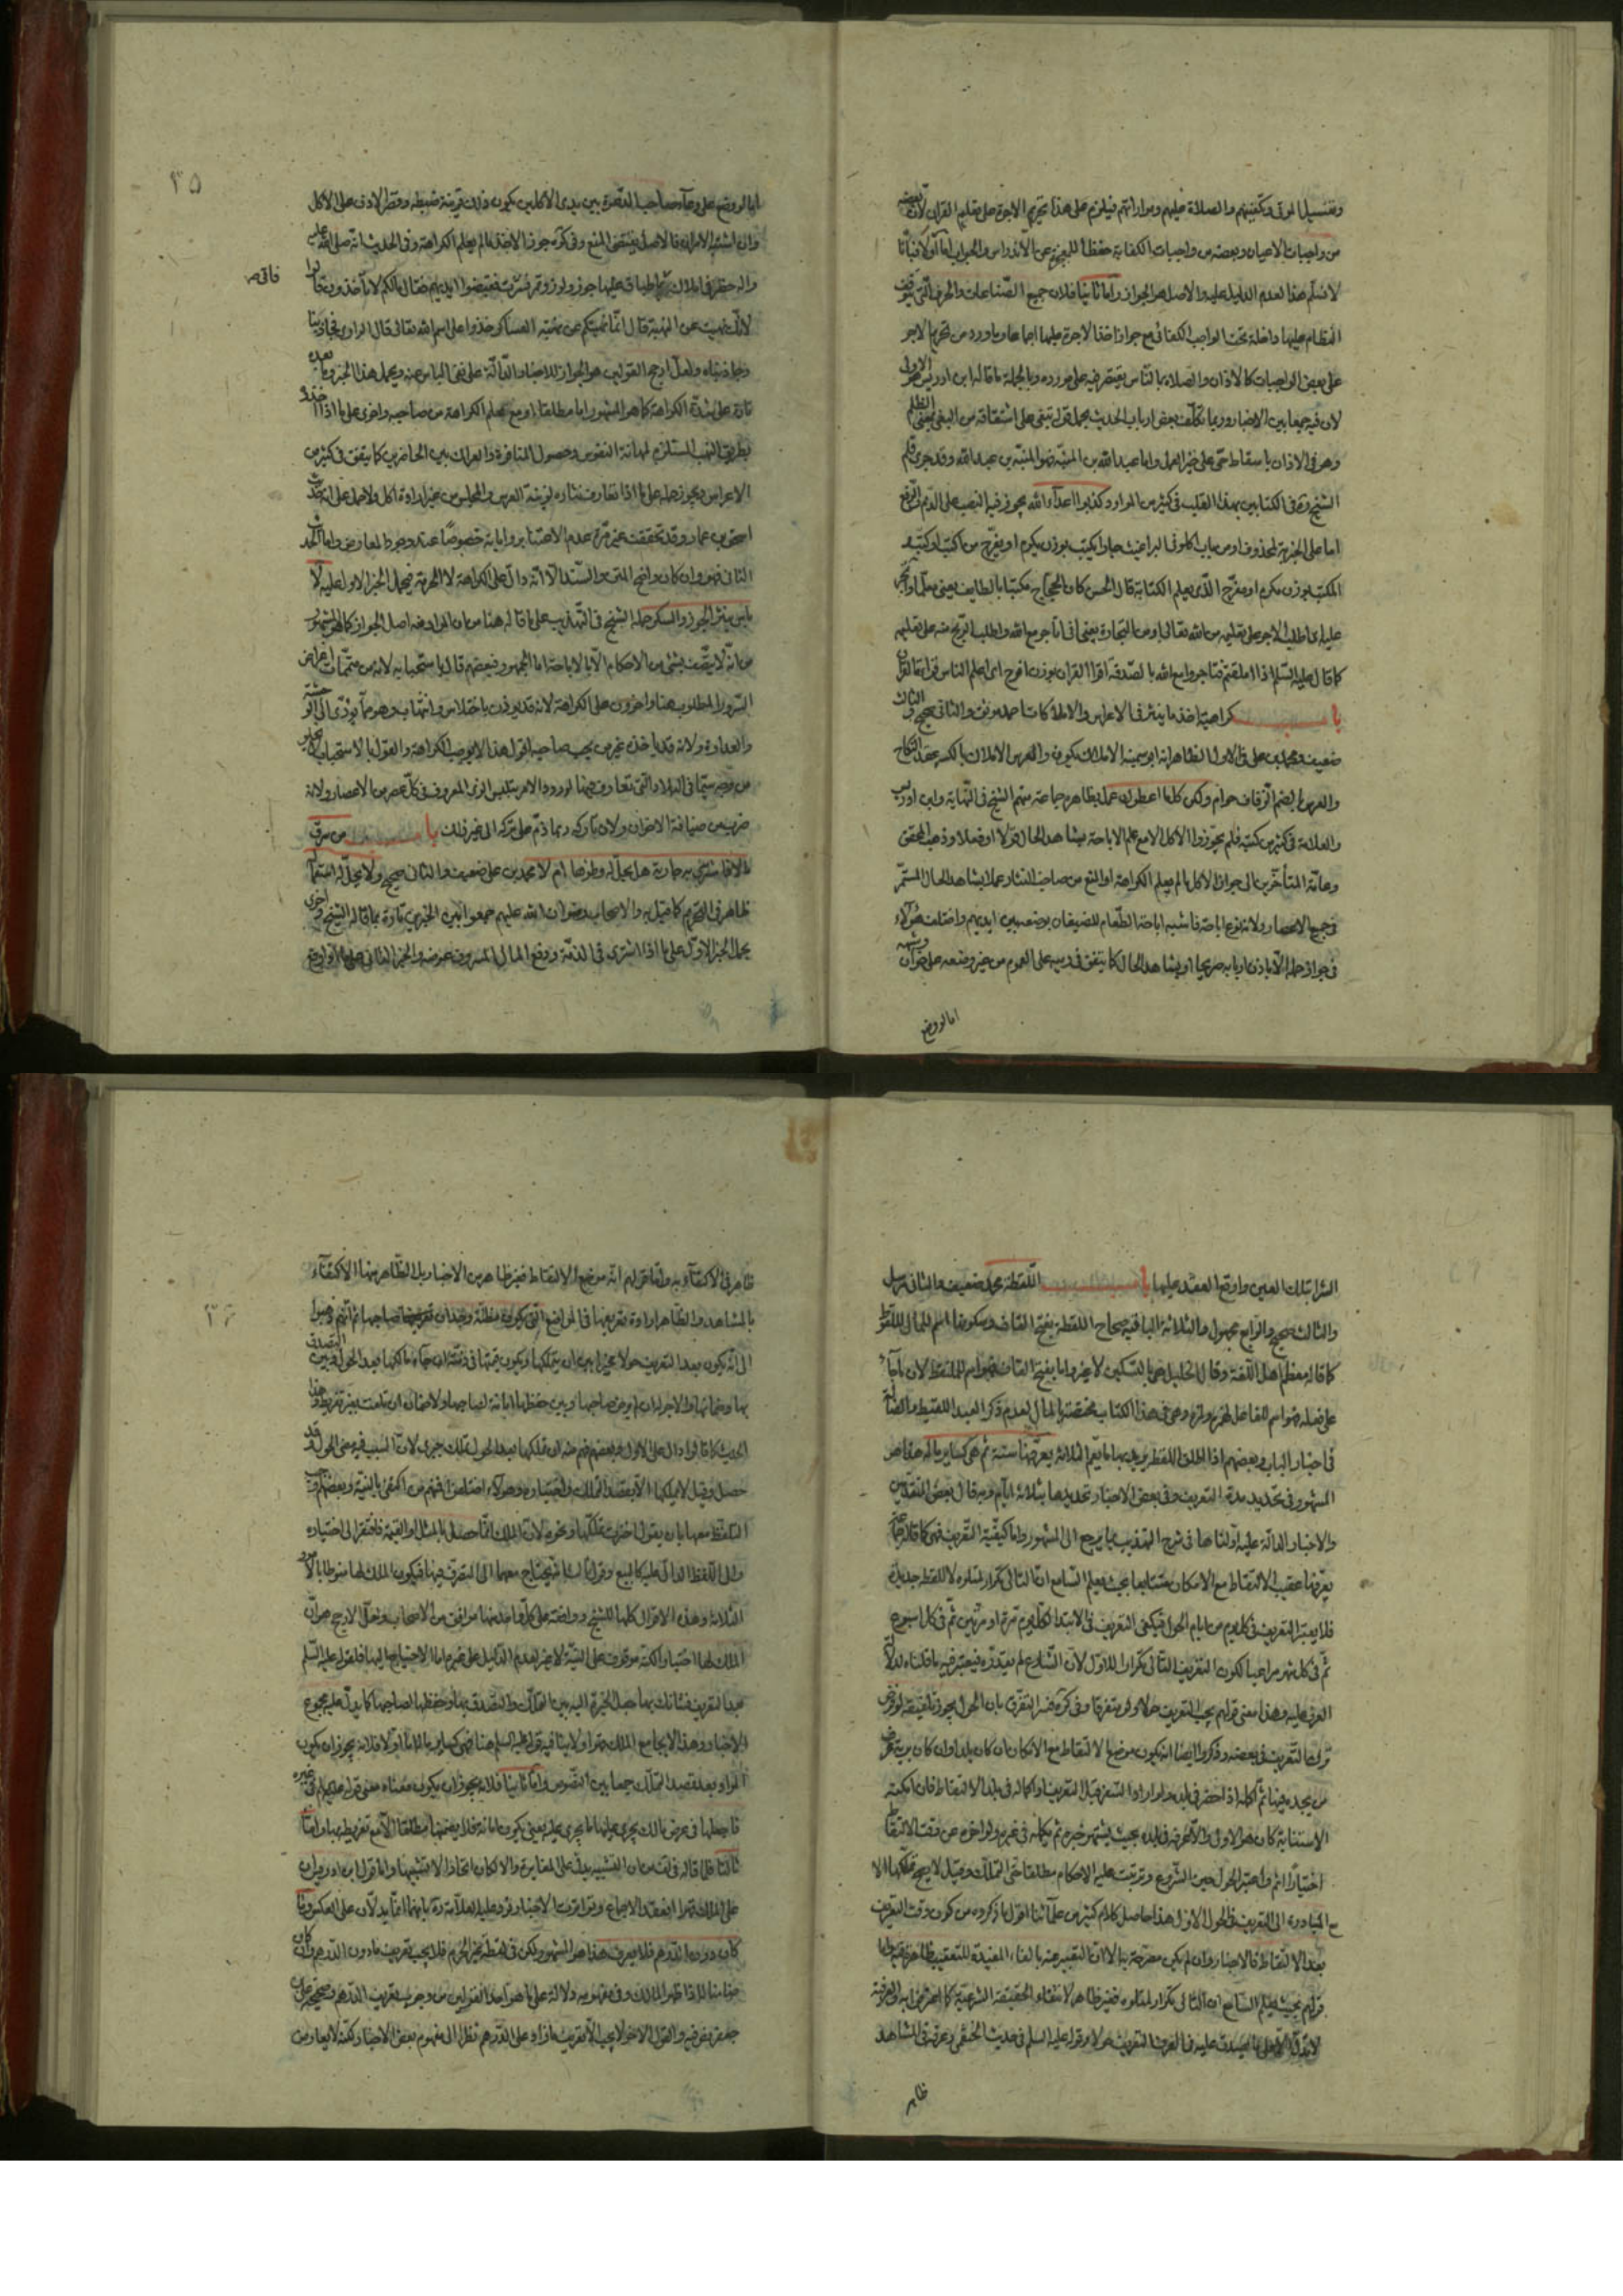 وتغسيل الموتى وتكفينهم والصلاة عليهم ومواراتهم فيلزم على هذا تحريم الاجرة على تعليم القران لان بعضه
من واجبات الاعيان وبعضه من واجبات الكفاية حفظا للمعجزة عن الاندراس والجواب اما اولا فبانا
لا نسلم هذا لعدم الدليل عليه والاصل هو الجواز واما ثانيا فلان جميع الصناعات والحرف التي يتوقف
النظام عليها داخلة تحت الواجب الكفائي مع جواز اخذ الاجرة عليها اجماعا وما ورد من تحريم الاجر
على بعض الواجبات كالاذان والصلاة بالناس يقتصر فيه على مورده وبالجملة ما قاله ابن ادريس هو الاولى
لان فيه جمعا بين الاخبار وربما تكلف بعض ارباب الحديث بحمل قوله تبغي على اشتقاقه من البغي بمعنى الظلم
وهو في الاذان باسقاط حي على خير العمل واما عبد الله بن المنبه فهو المنبه بن عبد الله وقد جرى قلم
الشيخ ره في الكتابين بهذا القلب في كثير من الموارد كذبوا اعداء الله يجوز فيه النصب على الذم والرفع
اما على الخبرية لمحذوف او من باب اكلوني البراغيث
المكتب بوزن مكرم او مفرح الذي يعلم الكتابة قال الحسن كان الحجاج مكتبا بالطايف يعني معلما
عليه اي اطلب الاجر على تعليمه من الله تعالى او من التجارة يعني اني اتاجر مع الله واطلب الربح منه على تعليمه
كما قال عليه السلم اذا املقتم فتاجروا مع الله بالصدقة
باب كراهية اخذ ما ينثر في الاعراس والاملاكات احمد موثق والثاني صحيح والثالث
ضعيف ومحمد بن علي في الاول الظاهر انه ابو سمينة الاملاك يكون والعرس الاملاك بالكسر عقد النكاح
والعرس بالضم الزفاف حرام ولكن كلما اعطوك عمل بظاهره جماعة منهم الشيخ في النهاية وابن ادريس
والعلامة في كثير من كتبه فلم يجوزوا الاكل الا مع علم الاباحة بشاهد الحال قولا او فعلا وذهب المحقق
وعامة المتأخرين الى جواز الاكل ما لم يعلم الكراهة او المنع من صاحب النثار عملا بشاهد الحال المستمر
في جميع الاعصار ولانه نوع اباحة فاشبه اباحة الطعام للضيفان بوضعه بين ايديهم واختلف هؤلاء
في جواز حمله الا باذن اربابه صريحا او بشاهد الحال كما يتفق في رميه على العموم من غير وضعه على خوان وشبهه
اما لو وضع
٣٥
اما لو وضع على وعاء صاحب الدعوة بين يدى الاكلين يكون ذلك قرينة ضبطه وقصر الاذن على الاكل
وان اشتبه الامران فالاصل يقتضي المنع وفي كره جوز الاخذ ما لم يعلم الكراهة وفي الحديث انه صلى الله عليه
واله حضر في املاك فاتي باطباق عليها جوز ولوز وتمر فنثرت فقبضوا ايديهم فقال مالكم لا تأخذون قالوا
لانك نهيت عن النهبة قال انما نهيتكم عن نهبة العساكر خذوا على اسم الله تعالى قال الراوي فجاذبنا
وجاذبناه ولعل ارجح القولين هو الجواز للاخبار الدالة على نفي الباس عنه ويحمل هذا الخبر وما بعده
تارة على شدة الكراهة كما هو المشهور اما مطلقا او مع علم الكراهة من صاحبه واخرى على ما اذا اخذوه
بطريق النهب المستلزم لمهانة النفوس وحصول المنافرة والعراك بين الحاضرين كما يتفق في كثير من
الاعراس ويجوز حمله على ما اذا تعارف نثاره لزينة العرس والمجلس من غير ارادة اكل
اسحق بن عمار وقد تحققت غير مرة عدم الاعتبار برواياته خصوصا عند وجود المعارض واما الحديث
الثاني فهو وان كان واضح المتن والسند الا انه دال على الكراهة لا الحرمة فيحمل الخبر الاول عليه لا
باس بنثر الجوز والسكر حمله الشيخ في التهذيب على ما قاله هنا من ان المراد منه اصل الجواز كما هو المشهور
من انه لا يتصف بشئ من الاحكام الا بالاباحة اما الجمهور فبعضهم قال باستحبابه لانه من متممات اغراض
السرور المطلوب هنا واخرون على الكراهة لانه قد يؤذن باختلاس وانتهاب وهو مما يؤذي الى الوحشة
والعداوة ولانه قد ياخذه غير من يحب صاحبه اقول هذا لا يوجب الكراهة والقول بالاستحباب لا يخلو
من وجه سيما في البلاد التي تعارف فيها لورود الامر بتلبس الزي المعروف في كل عصر من الاعصار ولانه
ضرب من ضيافة الاخوان ولان تاركه ربما ذم على تركه الى غير ذلك باب من سرق
مالا فاشترى به جارية هل يحل له وطؤها ام لا محمد بن علي ضعيف والثاني صحيح ولا يحل له استعمالها
ظاهر في التحريم كما قيل به والاصحاب رضوان الله عليهم جمعوا بين الخبرين تارة بما قاله الشيخ واخرى
بحمل الخبر الاول على ما اذا اشترى في الذمة ودفع المال المسروق عوضه والخبر الثاني على ما لو اوقع
الشرا بتلك العين واوقع العقد عليها باب اللقطة محمد ضعيف والثاني مرسل
والثالث صحيح والرابع مجهول والثلاثة الباقية صحاح اللقطة بفتح القاف وسكونها اسم للمال الملتقط
كما قاله معظم اهل اللغة وقال الخليل هي بالتسكين لا غير واما بفتح القاف فهو اسم للملتقط لان ما جاء
على فعلة فهو اسم للفاعل كهمزة ولمزة وهي في هذا الكتاب مختصة بالمال لعدم ذكر العبد اللقيط والضالة
في اخبار الباب وبعضهم اذا اطلق اللقطة يريد بها ما يعم الثلاثة يعرفها سنة ثم هي كساير ماله هذا هو
المشهور في تحديد مدة التعريف وفي بعض الاخبار تحديدها بثلاثة ايام وبه قال بعض المتقدمين
والاخبار الدالة عليه اولناها في شرح التهذيب بما يرجع الى المشهور واما كيفية التعريف فهي كما قالوا
يعرفها عقيب الالتقاط مع الامكان متتابعا بحيث يعلم السامع ان التالي تكرار لمتلوه لا للقطة جديدة
فلا يعتبر التعريف في كل يوم من ايام الحول فيكفي التعريف في الابتداء كل يوم مرة او مرتين ثم في كل اسبوع
ثم في كل شهر مراعيا لكون التعريف التالي تكرارا للاول لان الشارع لم يقدره فيعتبر فيه ما قلناه لدلالة
العرف عليه وهذا معنى قولهم يجب التعريف حولا ولو متفرقا وفي كره فسر التفرق بان الحول يجوز تلفيقه لو فرض
ترك التعريف في بعضه وذكروا ايضا انه يكون موضع الالتقاط مع الامكان ان كان بلدا وان كان برية عرف
من يجده فيها ثم اكمله اذا حضر في بلده ولو اراد السفر قبل التعريف او اكماله في بلد الالتقاط فان امكنه
الاستنابة كان هو الاولى والا عرفه في بلده بحيث يشتهر خبره ثم يكمله في غيره ولو اخره عن وقت الالتقاط
اختيارا اثم واعتبر الحول حين الشروع وترتبت عليه الاحكام مطلقا حتى التملك وقيل لا يصح تملكها الا
مع المبادرة الى التعريف في الحول الاول هذا حاصل كلام كثير من علمائنا اقول ما ذكروه من كون وقت التعريف
بعد الالتقاط فالاخبار وان لم يكن مصرحة به الا ان التعبير عنه بالفاء المفيدة للتعقيب ظاهر فيه واما
قولهم بحيث يعلم السامع ان التالي تكرار لمتلوه فغير ظاهر لانتفاء الحقيقة الشرعية كما اعترفوا به والعرفية
لا تدل الا على ما يصدق عليه في العرف التعريف حولا وقوله عليه السلم في حديث الحنفي وعرفه في المشاهد
ظاهر
٣٦
ظاهر في الاكتفاء به واما قولهم انه موضع الالتقاط فغير ظاهر من الاخبار بل الظاهر منها الاكتفاء
بالمشاهد والظاهر ارادة تعريفها في المواضع التي يكون مظنة وجدان صاحبها ثم انهم ذهبوا
الى انه يكون بعد التعريف حولا مخيرا بين ان يتملكها ويكون قيمتها في ذمته ان جاء مالكها بعد الحول وبين التصدق
بها وضمانها والاجر له ان لم يرض صاحبها وبين حفظها امانة لصاحبها ولا ضمان ان تلفت بغير تفريط وهذا
الحديث كما قالوا دال على الاول وبعضهم فهم منه ان تملكها بعد الحول تملك جبري لان السبب فيه مضي الحول وقد
حصل وقيل لا يملكها الا بقصد التملك واختياره وهؤلاء اختلفوا فمنهم من اكتفى بالنية وبعضهم اوجب
التلفظ معها بان يقول اخترت تملكها ونحوه لان الملك انما حصل بالمثل او القيمة فافتقر الى اختياره
والى اللفظ الدال عليه كالبيع وقول ثالث يحتاج معهما الى التصرف فيها فيكون الملك لها منوطا بالامور
الثلاثة وهذه الاقوال كلها للشيخ ووافقه على كل واحد منها موافق من الاصحاب ولعل الارجح هو ان
الملك لها اختيارا لكنه موقوف على النية لا غير لعدم الدليل على غيره اما الاحتياج اليها فلقوله عليه السلم
بعد التعريف فشانك بها حيث خيره بين التملك والتصدق بها وحفظها لصاحبها كما يدل عليه مجموع
الاخبار وهذا لا يجامع الملك قهرا ولا ينافيه قوله عليه السلم هنا فهي كساير ماله اما اولا فلانه يجوز ان يكون
المراد بعد قصد التملك جمعا بين النصوص واما ثانيا فلانه يجوز ان يكون معناه معنى قوله عليه السلم في غيره
فاجعلها في عرض مالك يجري عليها ما يجري عليه يعني يكون امانة فلا يضمنها مطلقا الا مع تفريطه بها واما
ثالثا فلما قاله في لف من ان التشبيه يدل على المغايرة والا لكان اتحادا لا تشبيها واما قول ابن ادريس
على الملك قهرا انعقد الاجماع وتواترت الاخبار فرد عليه العلامة ره بانهما انما يدلان على العكس وما
كان دون الدرهم فلا يعرف هذا هو المشهور ولكن في لقطة غير الحرم فلا يجب تعريف ما دون الدرهم وان كان
ضامنا له اذا ظهر المالك وفي مفهومه دلالة على ما هو احد القولين من وجوب تعريف الدرهم وصحيحة علي بن
جعفر نص فيه والقول الاخر لا يجب الا تعريف ما زاد على الدرهم نظرا الى مفهوم بعض الاخبار وكنه لا يعارض